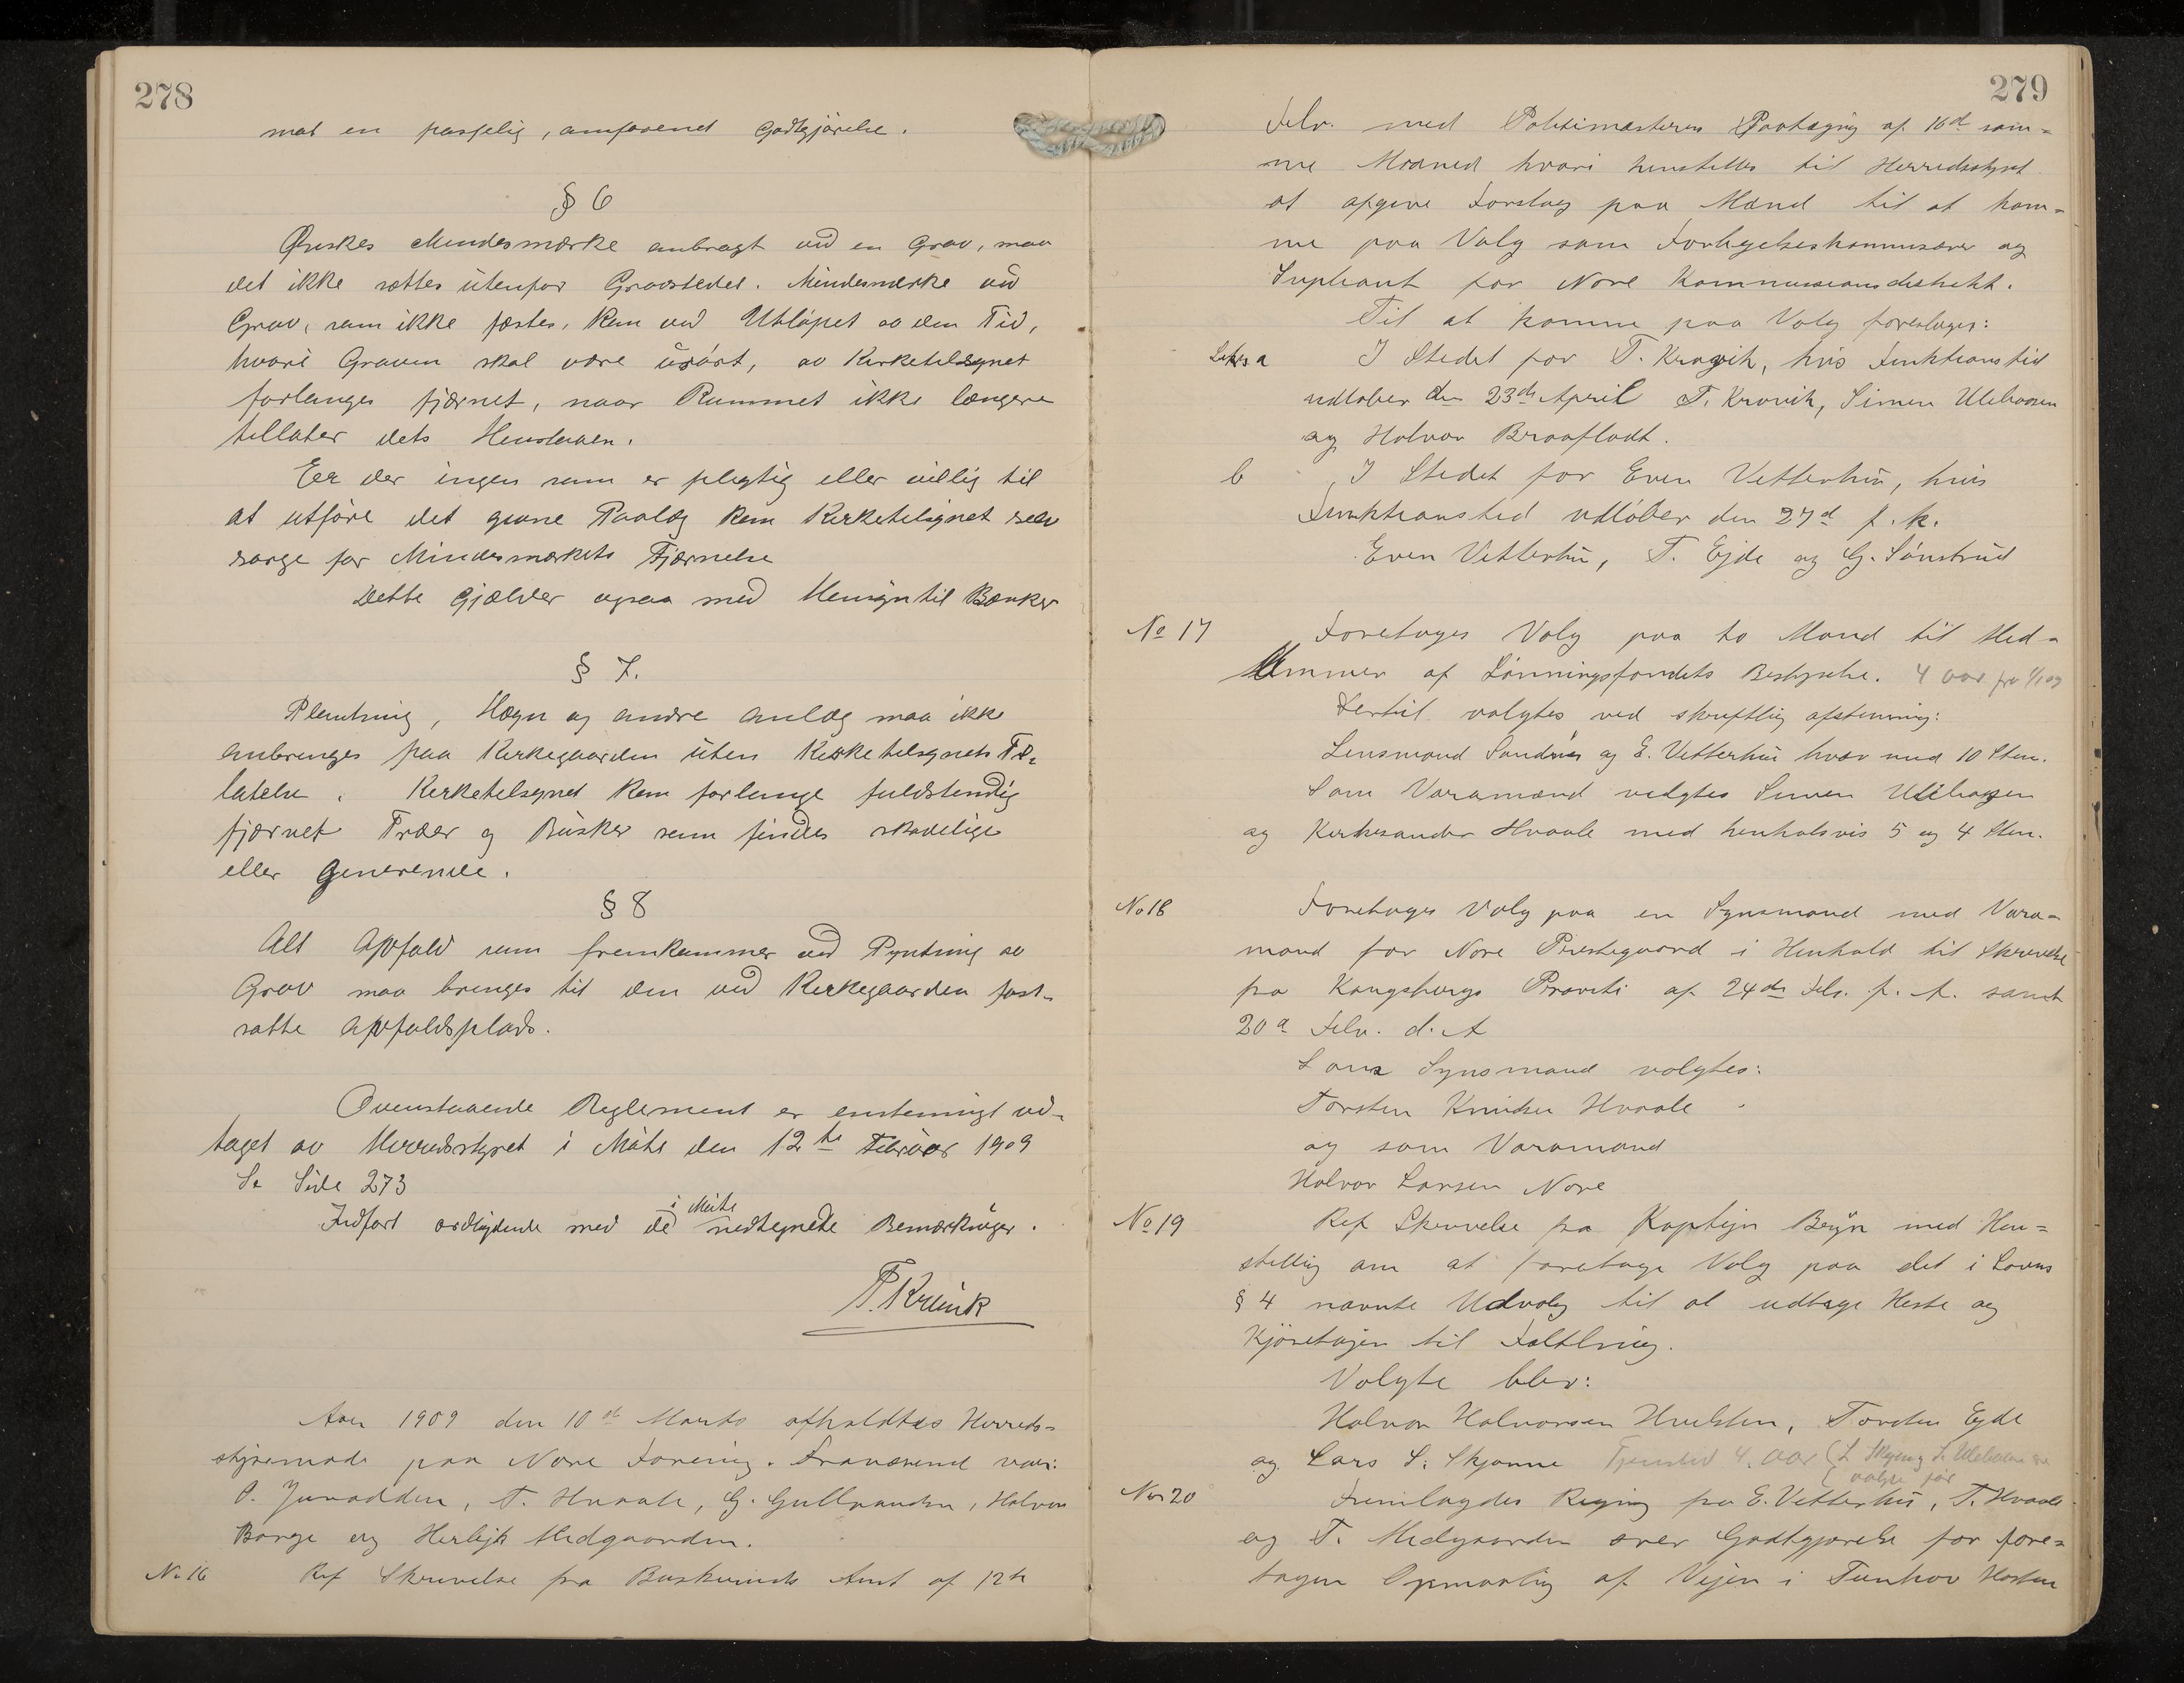 278
mot en passelig, anførend Godtgjörelse.
§ 6
Ønskes Mindesmærke anbragt ved en Grav, maa
det ikke sættes utenfor Gravstedet. Mindesmærke ved
Grav, som ikke fæstes, kan ved Utløpet av den Tid,
hvori Graven skal være urört, av Kirketilsynet
forlanges fjærnet, naar Rummet ikke længere
tillater dets Henstaaen.
Er der ingen som er pligtig eller villig til
at utföre det givne Paalæg kan Kirketilsynet selv
sørge for Mindesmærkets Fjærnelse
Dette gjælder ogsaa med Hensyn til Bænker
§ 7.
Plantning, Hegn og andre Anlæg maa ikke
anbringes paa Kirkegaarden uten Kirketilsynets Til-
latelse. Kirketilsynet kan forlange fuldstendig
fjærnet Trær og Busker som findes skadelige
eller generende.
§ 8
Alt Affald som fremkommer ved Pyntning av
Grav maa bringes til den ved Kirkegaarden fast-
satte Affaldsplads.
Ovenstaaende Reglement er enstemmigt ved-
taget av Herredsstyret i Möte den 12te Februar 1909
Se Side 273
Indført ordlydende med de i Møte nedtegnede Bemærkninger.
T. Kravik
Aar 1909 den 10de Marts afholdtes Herreds-
styremøde paa Nore Forening. Fraværend var:
P. Juvodden, T. Hvaale, G. Gullrauden, Halvor
Borge og Herlejk Medgaarden.
No 16 Ref Skrivelse fra Buskeruds Amt af 12te
279
Febr. med Politimesterens Paategning af 16de sam-
me Maaned hvori henstilles til Herredsstyret
at afgive Forslag paa Mænd til at kom-
me paa Valg som Forligelseskommissærer og
Supleant for Nore Kommissionsdistrikt.
Til at komme paa Valg foreslages:
Litra a I Stedet for T. Kravik, hvis Funktionstid
udløber den 23de April T. Kravik, Simen Ulehaagen
og Halvor Braaflodt.
b I Stedet for Even Vetterhus, hvis
Funktionstid udløber den 27d f. k.
Even Vetterhus, T. Ejde og G. Sønstrud
No 17 Foretages Valg paa to Mænd til Med-
lemmer af Lønningsfondets Bestyrelse. 4 aar fra 1/1 09
Dertil valgtes ved skriftlig afstemning:
Lensmand Sandnes og E. Vetterhus hver med 10 Stem.
Som Varamænd valgtes Simen Ulehagen
og Kirkesanger Hvaale med henholsvis 5 og 4 Stem.
No 18 Foretages Valg paa en Synsmand med Vara-
mand for Nore Prestegaard i Henhold til Skrivelse
fra Kongsbergs Provsti af 24de Febr. f. A. samt
20d Febr. d. A
Som Synsmand valgtes:
Torsten Knudsen Hvaale
og som Varamand
Halvor Larsen Nore
No 19 Ref Skrivelse fra Kaptejn Bryn med Hen-
stilling om at foretage Valg paa det i Lovens
§ 4 nævnte Udvalg til at udtage Heste og
Kjöretøjer til Feltbrug.
Valgte blev:
Halvor Halvorsen Hvelsten, Torsten Ejde
og Lars S. Skjønne Tjenestid 4. aar
valgte før
No 20 Fremlagdes Regning fra E. Vetterhus, T. Hvaale
og T. Medgaarden over Godtgjørelse for fore-
tagen Opmaaling af Vejen i Tunhov Høsten